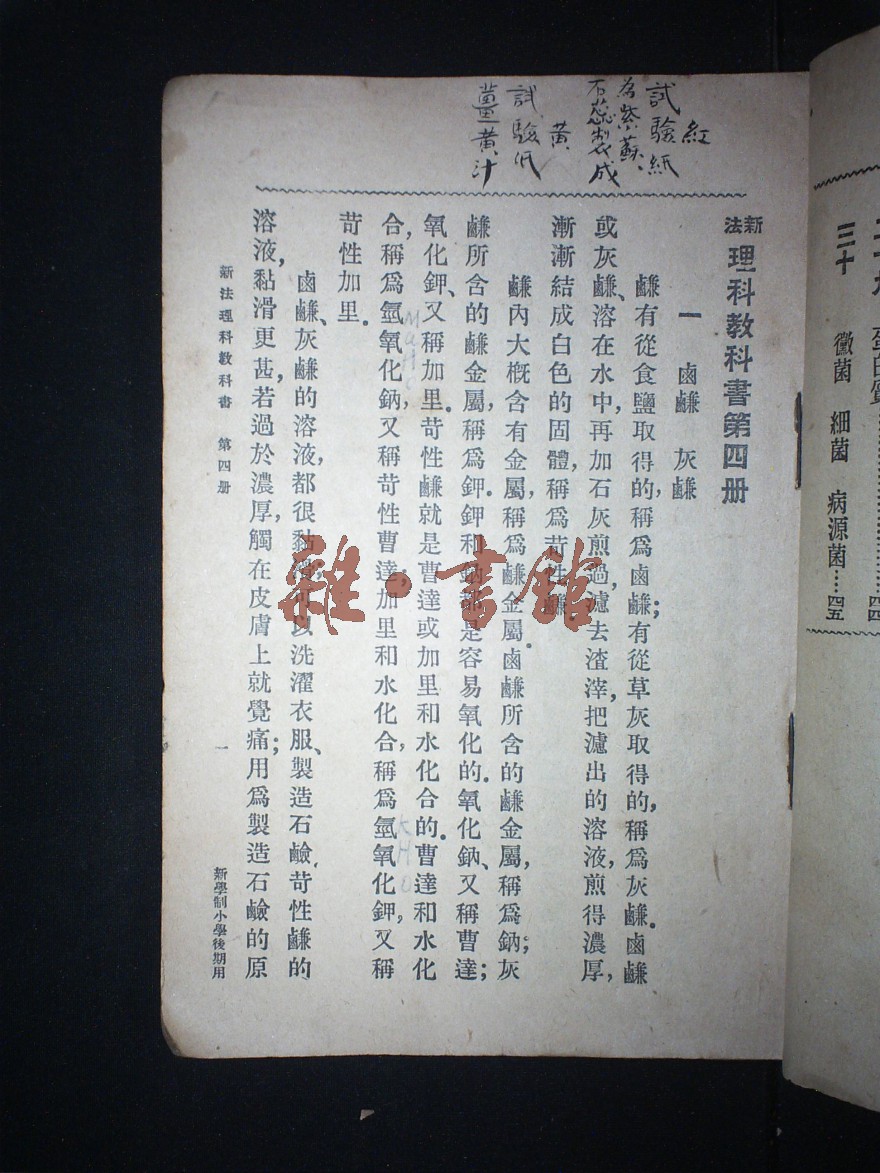 三十　黴菌　細菌　病源菌……四五
紅
試驗紙
為紫蘇、
石蕊製成
黃
試驗紙
薑黃汁
新法理科教科書第四册
一　鹵鹻　灰鹻
鹻有從食鹽取得的,稱爲鹵鹻;有從草灰取得的,稱爲灰鹻.鹵鹻
或灰鹻、溶在水中,再加石灰煎過,濾去渣滓,把濾出的溶液,煎得濃厚,
漸漸結成白色的固體,稱爲苛性鹻.
鹻內大槪含有金屬,稱爲鹻金屬.鹵鹻所含的鹻金屬,稱爲鈉;灰
鹻所含的鹻金屬,稱爲鉀.鉀和鈉都是容易氧化的.氧化鈉、又稱曹達;
氧化鉀、又稱加里.苛性鹻就是曹達或加里和水化合的.曹達和水化
合,稱爲氫氧化鈉,又稱苛性曹達,加里和水化合,稱爲氫氧化鉀,又稱
苛性加里.
鹵鹻、灰鹻的溶液,都很黏滑;可以洗濯衣服、製造石鹼.苛性鹻的
溶液,黏滑更甚,若過於濃厚,觸在皮膚上就覺痛;用爲製造石鹼的原
新法理科教科書　第四册
一
新學制小學後期用
雜·書館